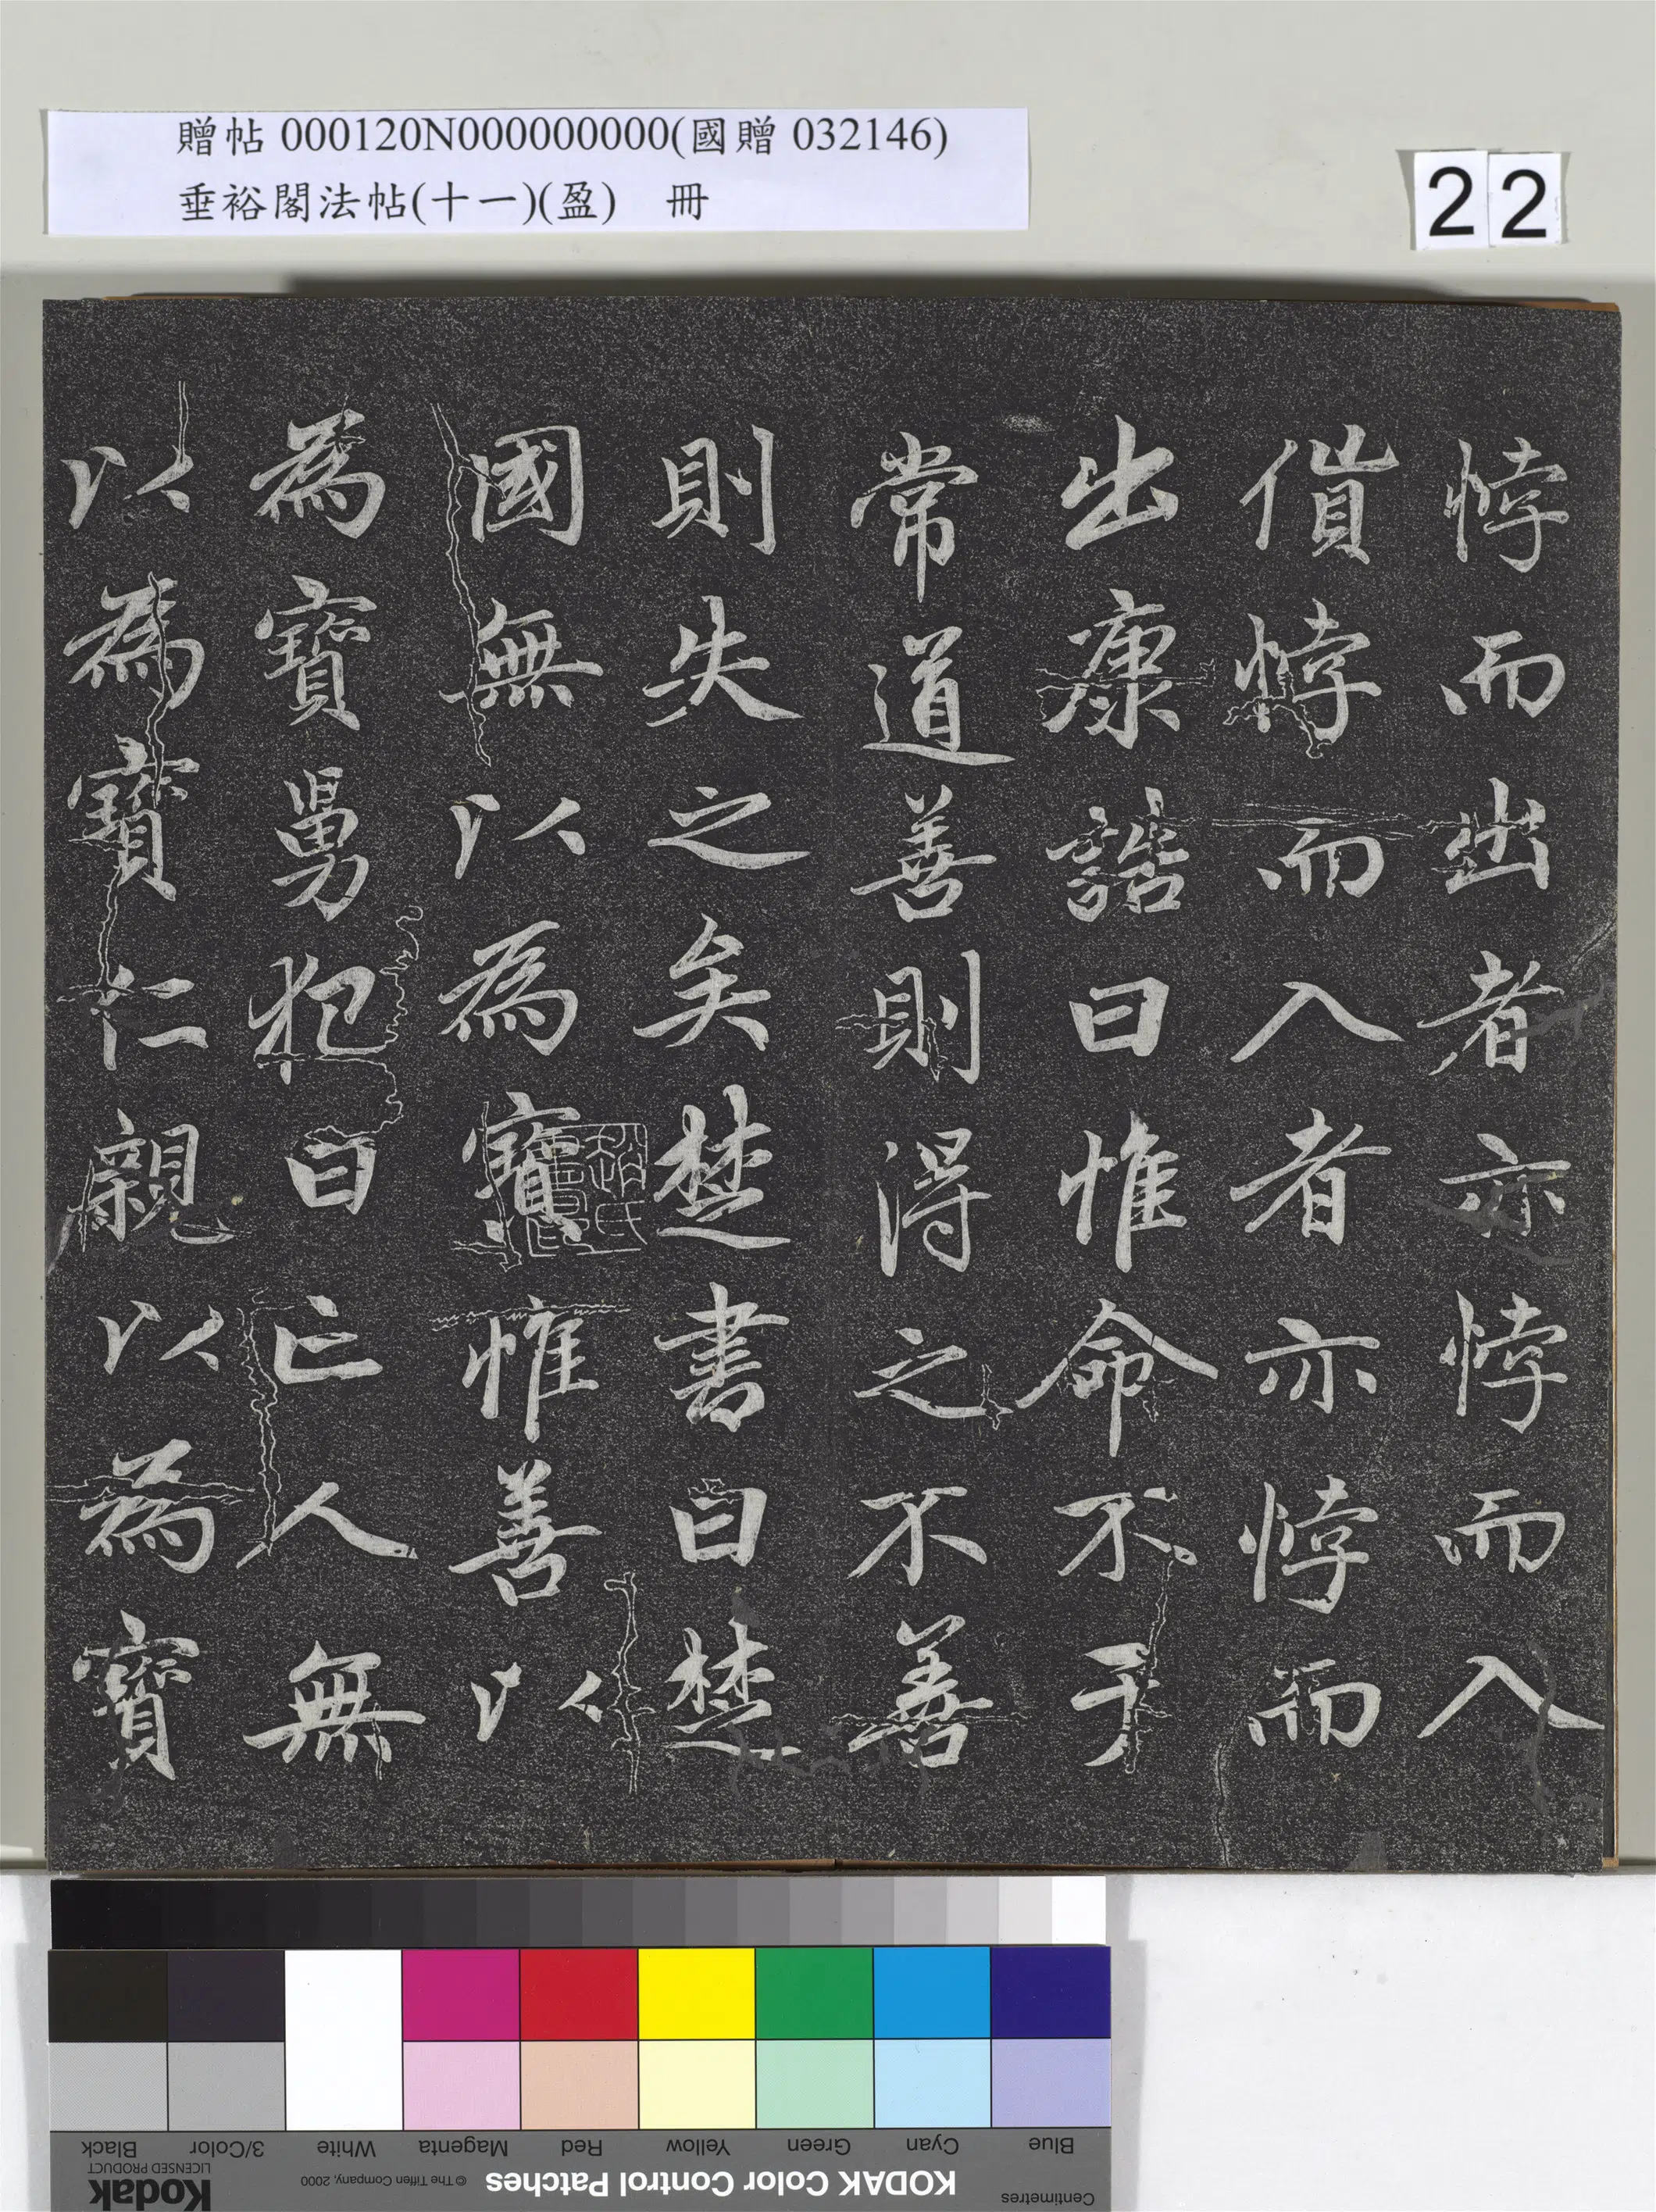 贈帖 000120N000000000(國贈 032146)
垂裕閣法帖(十一)(盈) 冊
22
悖而出者亦悖而入
偩悖而入者亦悖而
出康誥曰惟命不于
常道善則得之不善
則失之矣楚書曰楚
國無以為寶惟善以
為寶舅犯曰亡人無
以為寶仁親以為寶
Black
3/Color
White
Magenta
Red
Yellow
Green
Cyan
Blue
Kodak
LICENSED PRODUCT
© The Tiffen Company, 2000
KODAK Color Control Patches
Centimetres